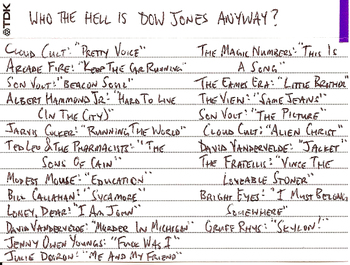 TDK
WHO THE HELL IS DOW JONES ANYWAY?
CLOUD CULT: "PRETTY VOICE"
ARCADE FIRE: "KEEP THE CAR RUNNING"
SON VOLT: "BEACON SOUL"
ALBERT HAMMOND JR: "HARD TO LIVE
(IN THE CITY)"
JARVIS COCKER: "RUNNING THE WORLD"
TED LEO & THE PHARMACISTS: "THE
SONS OF CAIN"
MODEST MOUSE: "EDUCATION"
BILL CALLAHAN: "SYCAMORE"
LONEY, DEAR: "I AM JOHN"
DAVID VANDERVELDE: "MURDER IN MICHIGAN"
JENNY OWEN YOUNGS: "FUCK WAS I"
JULIE DOIRON: "ME AND MY FRIEND"
THE MAGIC NUMBERS: "THIS IS
A SONG"
THE EAMES ERA: "LITTLE BROTHER"
THE VIEW: "SAME JEANS"
SON VOLT: "THE PICTURE"
CLOUD CULT: "ALIEN CHRIST"
DAVID VANDERVELDE: "JACKET"
THE FRATELLIS: "VINCE THE
LOVEABLE STONER"
BRIGHT EYES: "I MUST BELONG
SOMEWHERE"
GRUFF RHYS: "SKYLON!"